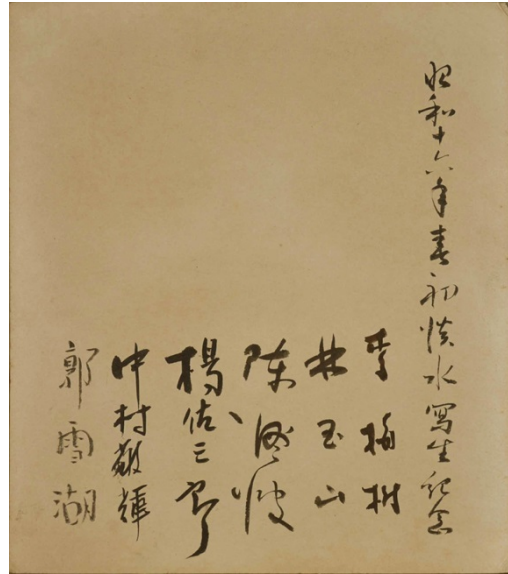 昭和十六年春初淡水寫生記念
李梅樹
林玉山
陳澄波
楊佐三郎
中村敬輝
郭雪湖